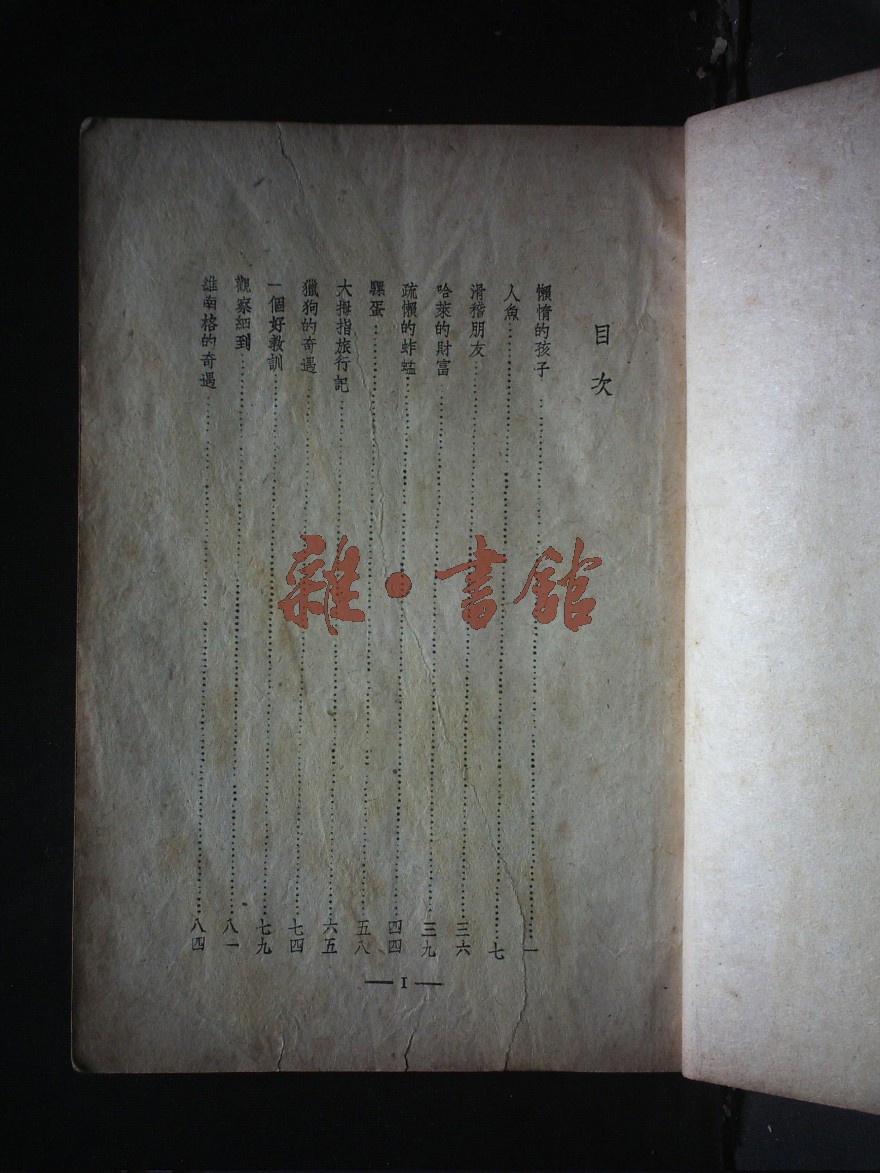 目次
懶惰的孩子……一
人魚……七
滑稽朋友……三六
哈萊的財富……三九
疏懶的蚱蜢……四四
騾蛋……五八
大拇指旅行記……六五
獵狗的奇遇……七四
一個好教訓……七九
觀察細到……八一
雄南格的奇遇……八四
— I —
雜·書館